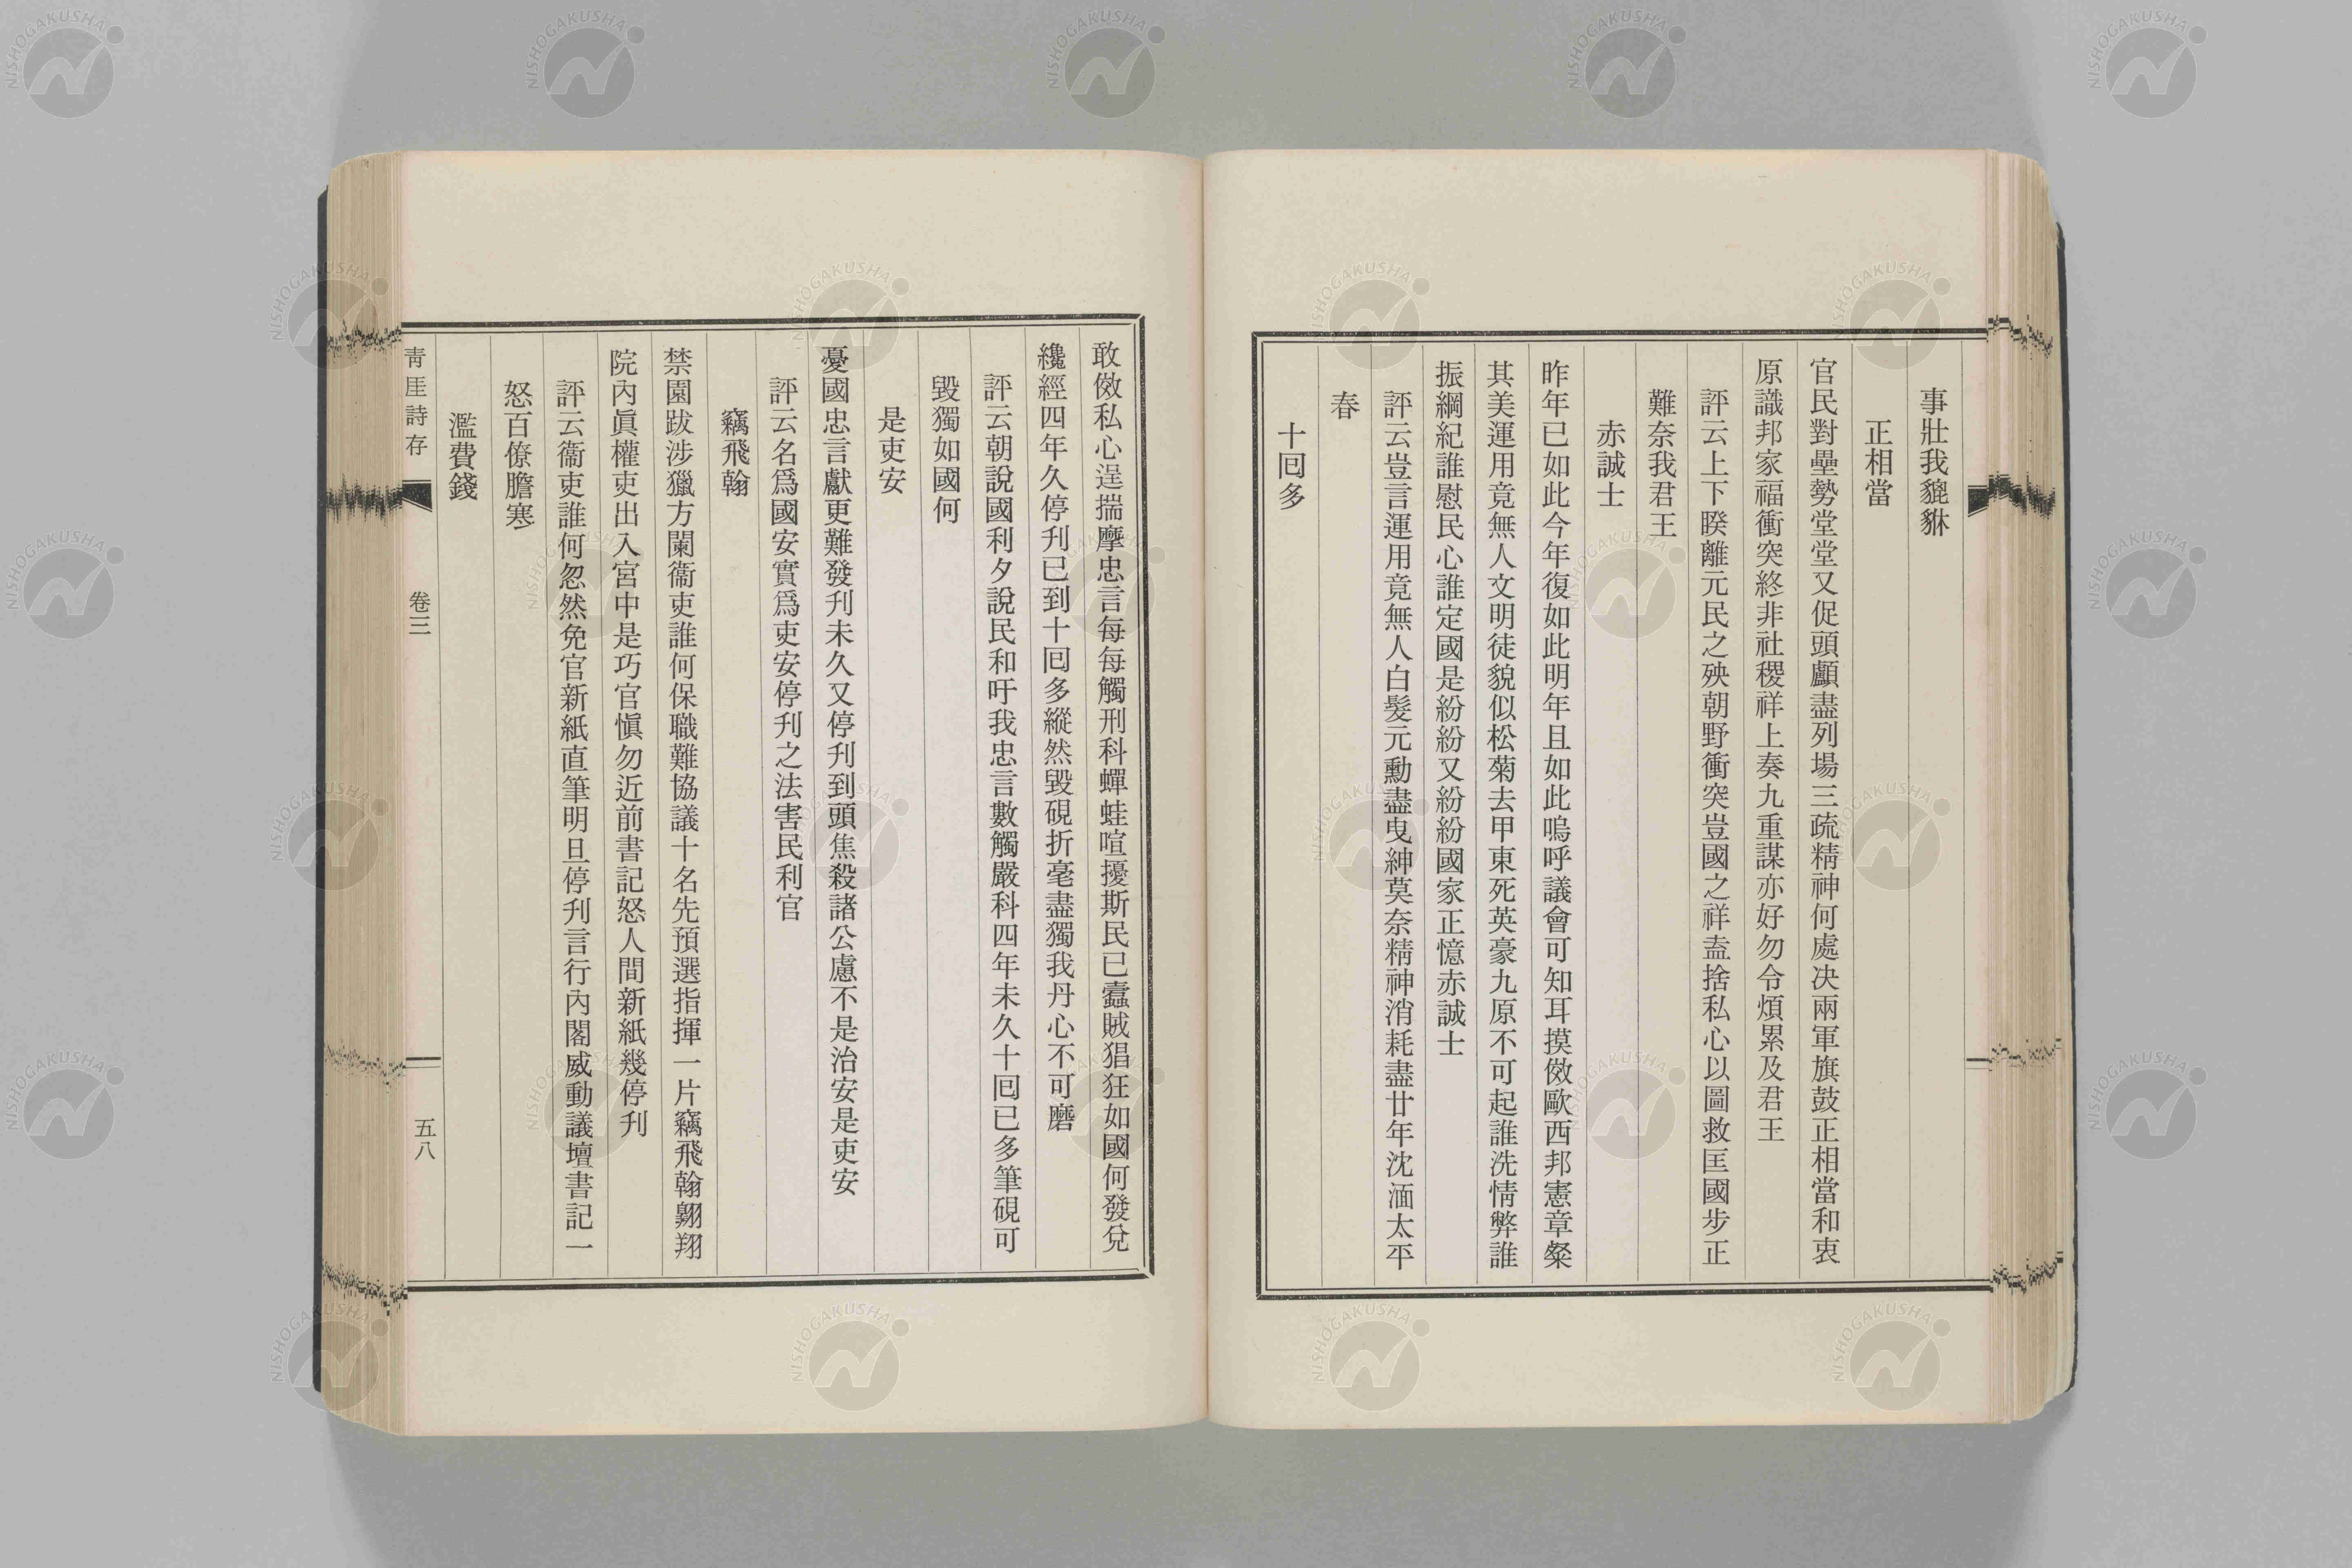 事壯我貔貅
正相當
官民對壘勢堂堂又促頭顱盡列場三疏精神何處决兩軍旗鼓正相當和衷
原識邦家福衝突終非社稷祥上奏九重謀亦好勿令煩累及君王
評云上下睽離元民之殃朝野衝突豈國之祥盍捨私心以圖救匡國步正
難奈我君王
赤誠士
昨年已如此今年復如此明年且如此嗚呼議會可知耳摸傚歐西邦憲章粲
其美運用竟無人文明徒貌似松菊去甲東死英豪九原不可起誰洗情弊誰
振綱紀誰慰民心誰定國是紛紛又紛紛國家正憶赤誠士
評云豈言運用竟無人白髮元勳盡曳紳莫奈精神消耗盡廿年沈湎太平
春
十回多
敢傚私心逞揣摩忠言每每觸刑科蟬蛙喧擾斯民已蠹賊猖狂如國何發兌
纔經四年久停刋已到十回多縱然毀硯折毫盡獨我丹心不可磨
評云朝說國利夕說民和吁我忠言數觸嚴科四年未久十回已多筆硯可
毀獨如國何
是吏安
憂國忠言獻更難發刋未久又停刋到頭焦殺諸公慮不是治安是吏安
評云名爲國安實爲吏安停刋之法害民利官
竊飛翰
禁園跋涉獵方闌衞吏誰何保職難協議十名先預選指揮一片竊飛翰翺翔
院內眞權吏出入宮中是巧官愼勿近前書記怒人間新紙幾停刋
評云衞吏誰何忽然免官新紙直筆明旦停刋言行內閣威動議壇書記一
怒百僚膽寒
濫費錢
靑厓詩存
卷三
五八
NISHOGAKUSHA